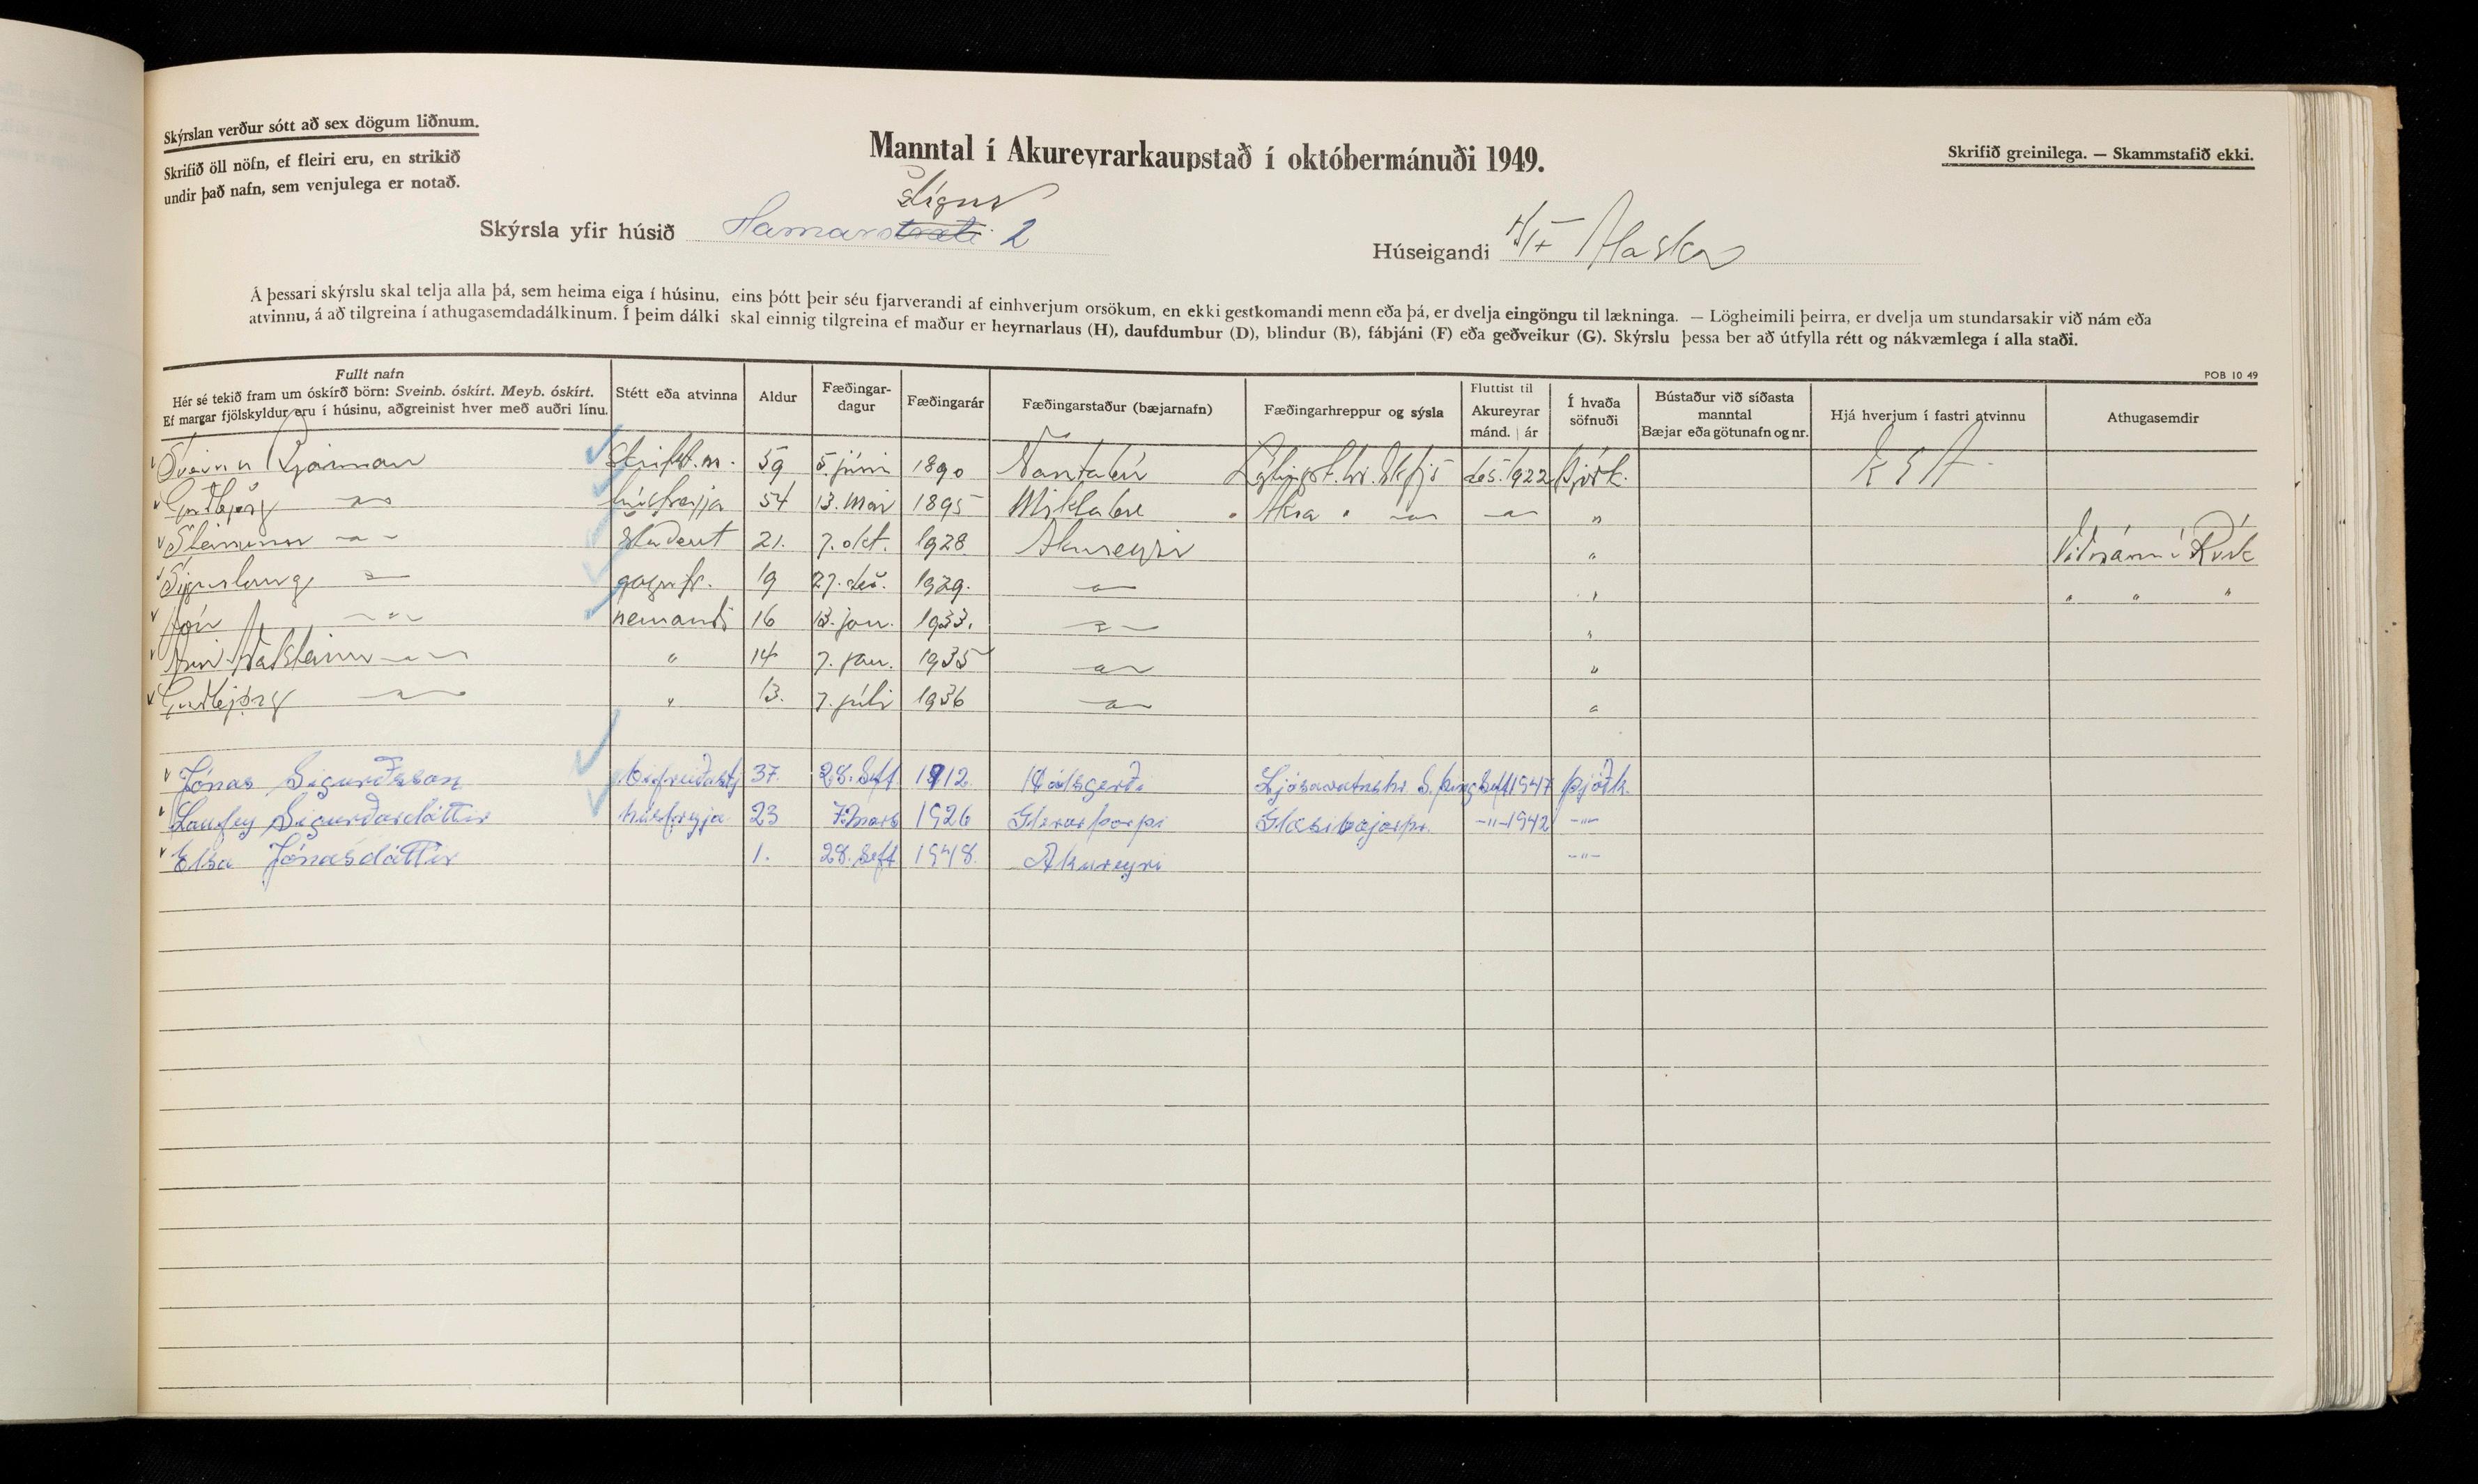 Skýrslan verður sótt að sex dögum liðnum.
Skrifið öll nöfn, ef fleiri eru, en strikið
undir það nafn, sem venjulega er notað.
Manntal í Akureyrarkaupstað í októbermánuði 1949.
Skrifið greinilega. — Skammstafið ekki.
stígur
Skýrsla yfir húsið Hamarstræti 2
Húseigandi Alaska
Á þessari skýrslu skal telja alla þá, sem heima eiga í húsinu, eins þótt þeir séu fjarverandi af einhverjum orsökum, en ekki gestkomandi menn eða þá, er dvelja eingöngu til lækninga. — Lögheimili þeirra, er dvelja um stundarsakir við nám eða
atvinnu, á að tilgreina í athugasemdadálkinum. Í þeim dálki skal einnig tilgreina ef maður er heyrnarlaus (H), daufdumbur (D), blindur (B), fábjáni (F) eða geðveikur (G). Skýrslu þessa ber að útfylla rétt og nákvæmlega í alla staði.
POB 10 49
Fullt nafn
Hér sé tekið fram um óskírð börn: Sveinb. óskírt. Meyb. óskírt.
Ef margar fjölskyldur eru í húsinu, aðgreinist hver með auðri línu.
Stétt eða atvinna
Aldur
Fæðingar-
dagur
Fæðingarár
Fæðingarstaður (bæjarnafn)
Fæðingarhreppur og sýsla
Fluttist til
Akureyrar
mánd. | ár
Í hvaða
söfnuði
Bústaður við síðasta
manntal
Bæjar eða götunafn og nr.
Hjá hverjum í fastri atvinnu
Athugasemdir
Sveinn Bjarman Skrifst.m. 59 5. júní 1890 Nautabú Lýtingsst.hr. Skfjs des. 1922 Þjóðk. K E A
Guðbjörg –„– húsfreyja 54 13. maí 1895 Miklabæ Akra " –„– –„– "
Steinunn –„– Student 21. 7. okt. 1928 Akureyri " Við nám í Rvík
Sigurlaug –„– gagnfr. 19 27. des. 1929. –„– " " " "
Jón –„– nemandi 16 13. jan. 1933. –„– "
–„– " 14 7. jan. 1935 –„– "
Guðbjörg –„– " 13. 7. júlí 1936 –„– "
Jónas Sigurðsson bifreiðastj 37. 28. Sept. 1912. Hálsgerði Ljósavatnshr. S. þing Sept 1947 þjóðk.
Laufey Sigurðardóttir húsfreyja 23 7 mars 1926 Glerárþorpi Glæsibæjarhr. –"– 1942 –"–
Elsa Jónasdóttir 1. 28. Sept. 1948. Akureyri –"–